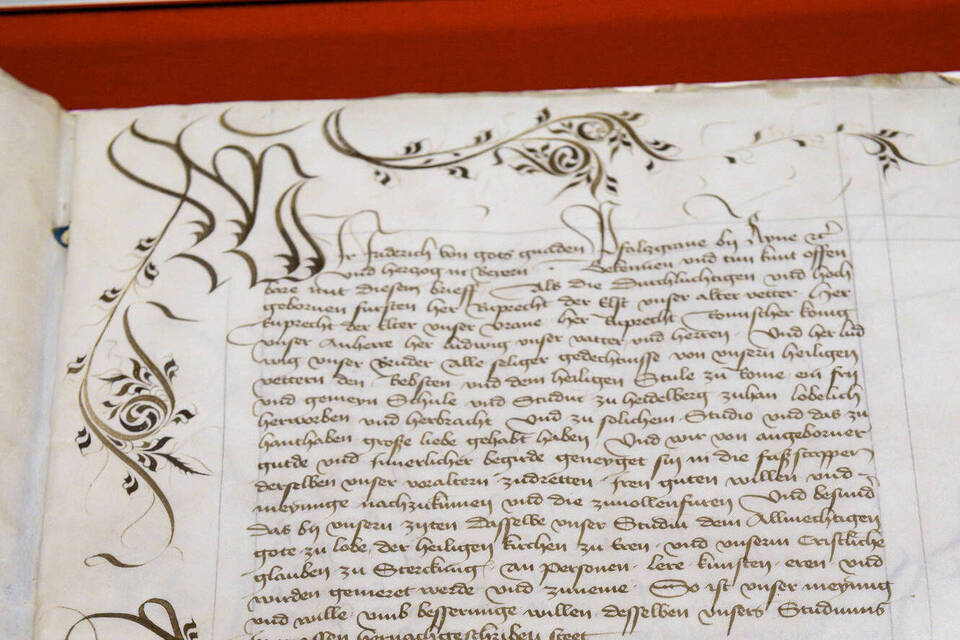 Wir Fridrich von gots gnaden Pfalzgraue bij Ryne etc
vnd herzog in Beyern · Bekennen vnd tun kunt offen
bare mit diesem brieff · Als die Durchluchtigen vnd hoch
gebornen fursten her Ruprecht der Elst vnser alter vetter · her
Ruprecht der Elter vnser Vrane · her Ruprecht Romischer konig
vnser Anherre her ludwig vnser vatter vnd herren · Vnd her lud
wig vnser Bruder Alle seliger gedechtnisse von vnsern heiligen
vettern den Bebsten vnd dem heiligen Stule zu Rome · ein fry
vnd gemeyn Schule vnd Studium zu Heidelberg zuhan lobelich
herworben vnd herbracht Vnd zu solichem Studio vnd das zu
hanthaben große liebe gehabt haben Vnd wir von angeborner
gutde vnd Innerlicher begirde geneyget sin in die fußstapper
derselben vnser voraltern zudretten · Iren guten willen vnd
meynunge nachzukumen vnd die zuuollenfuren Vnd besund
das bij vnsern zijten Dasselbe vnser Studium dem Allmechtigen
gote zu lobe, der heiligen kirchen zu Eren · vnd vnserm Cristliche
glauben zu Sterckung · an personen · lere kunsten · eren vnd
wirden gemeret werde vnd zuneme · So ist vnser meynung
vnd wille vmb besserunge willen desselben vnsers Studiums
massen hernachgeschriben steet